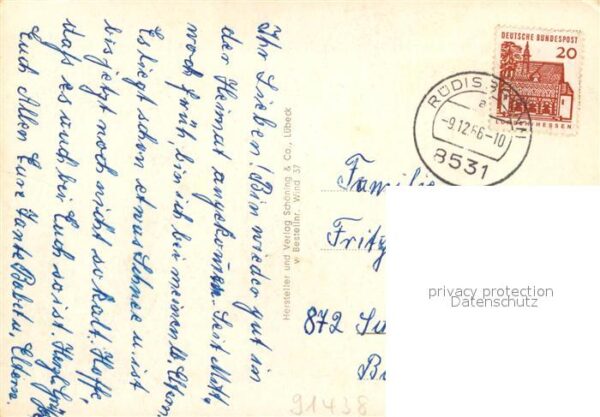 Ihr Lieben! Bin wieder gut in
der Heimat angekommen. Seit Mitt-
woch früh, bin ich bei meinen lb. Eltern.
Es liegt schon etwas Schnee u. ist
bis jetzt noch nicht so kalt. Hoffe
daß es auch bei Euch so ist. Herzl. Grüße
Euch Allen Eure Tante Babet u. Eltern.
Hersteller und Verlag Schöning & Co., Lübeck
Bestellnr. Wind 37
DEUTSCHE BUNDESPOST
20
HESSEN
RÜDIS
a
-9.12.66-10
8531
Familie
Fritz
872
privacy protection
Datenschutz
91438